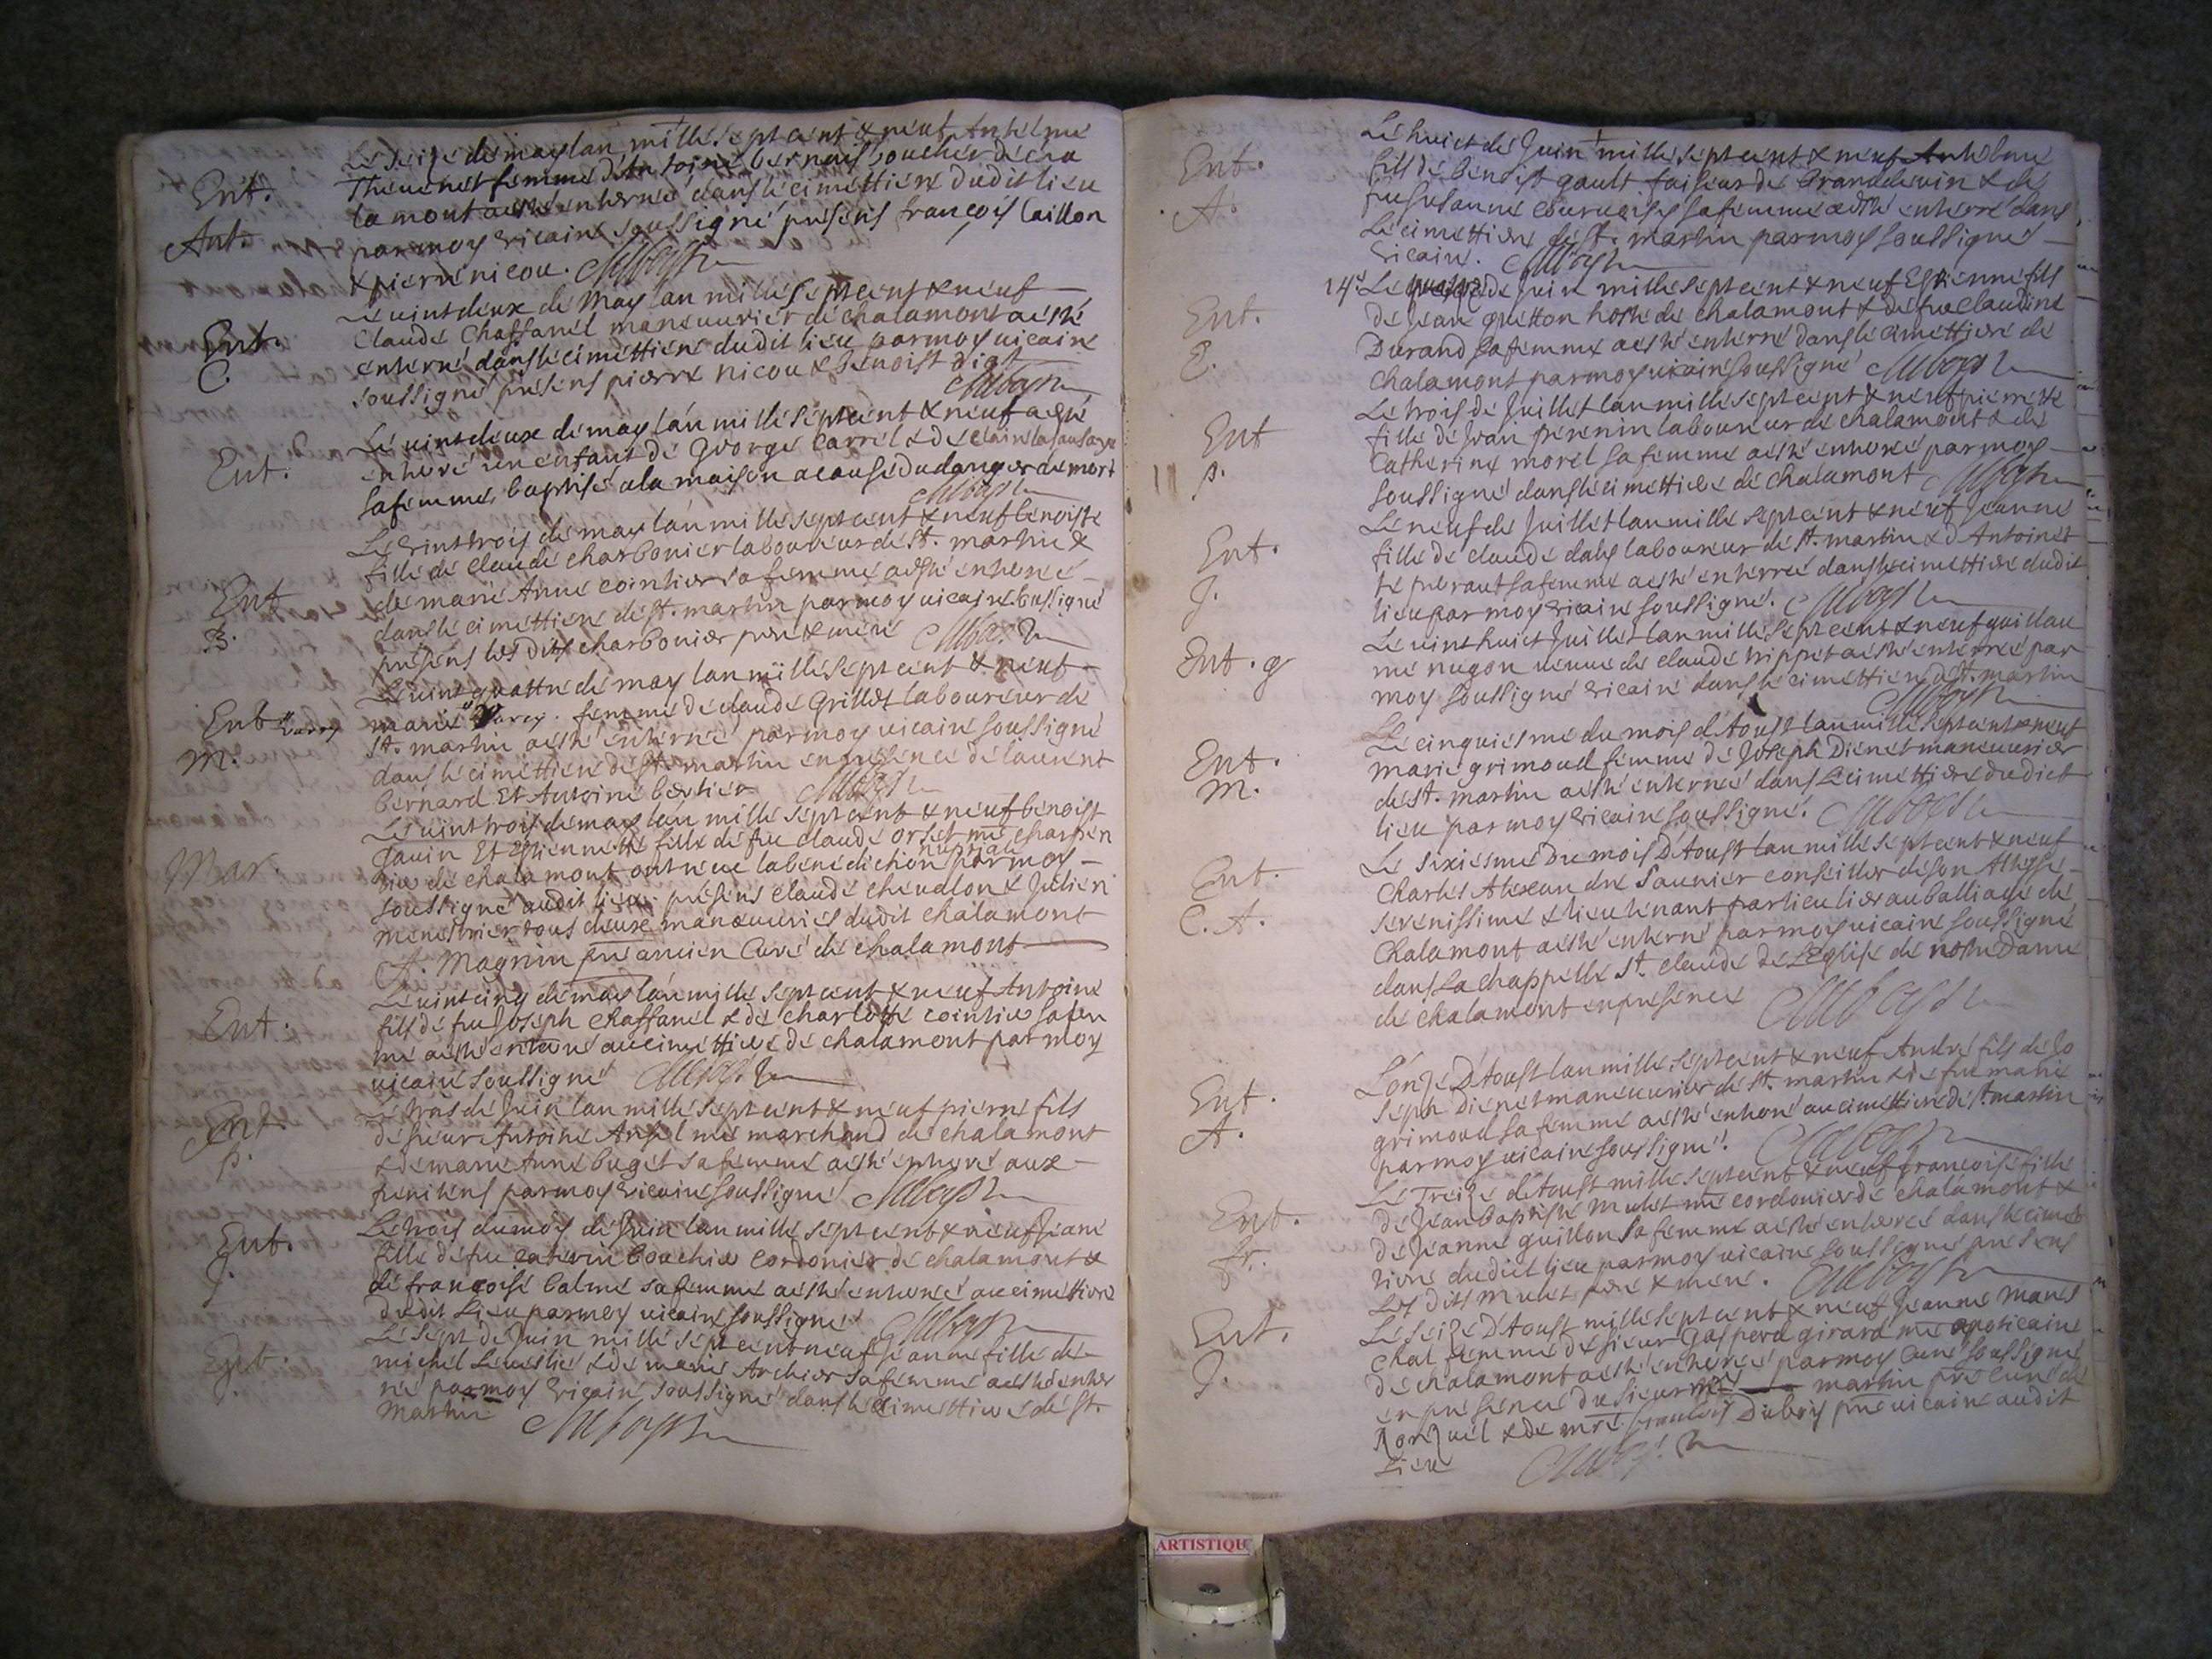 Le seize de may lan mille sept cent & neuf Anthelme
Ent.
Thevenet femme d'Antoine bernay boucher de cha
Ant.
lamont a esté enterreé dans le cimettiere dudit lieu
par moy vicaire soussigné presens françois Caillon
& pierre nicou.
Le vint deux de May lan mille sept cent & neuf
Ent.
Claude Chaffanel maneuvrier de chalamont a esté
C.
enterré dans le cimettiere dudit lieu par moy vicaire
soussigné presens pierre nicou & benoist
Le vint deux de may lan mille sept cent & neuf a esté
Ent.
enterré un enfant de George Carrel & de
sa femme, baptisé a la maison a cause du danger de mort
Le vint trois de may lan mille sept cent & neuf benoiste
fille de claude charbonier laboureur de st. martin &
Ent
de marie Anne cointier sa femme a esté enterreé
B.
dans le cimettiere de st. martin par moy vicaire soussigné
presens les dits charbonier pere & mere
Le vint quattre de may lan mille sept cent & neuf
Ent
marie femme de claude Grillet laboureur de
M.
st. martin a esté enterreé par moy vicaire soussigné
dans le cimettiere de st. martin en presence de laurent
bernard Et Antoine bertier
Le vint trois de may lan mille sept cent & neuf benoist
Mar.
Gauin Et Estiennette fille de feu claude orset me charpen
tier de chalamont ont receu la benediction nuptiale par moy
soussigné audit lieu. presens claude chevallon & Julien
menestrier tous deux manoeuvries dudit chalamont
A. Magnin pre ancien Curé de chalamont
Le vint cinq de may lan mille sept cent & neuf Antoine
Ent.
fils de feu Joseph Chaffanel & de charlotte cointier sa fem
me a esté enterré au cimettiere de chalamont par moy
vicaire soussigné
Le trois de Juin lan mille sept cent & neuf pierre fils
Ent.
de sieur Antoine Anselme marchand de chalamont
p.
& de marie Anne buget sa femme a esté enterré aux
penitens par moy vicaire soussigné
Le trois du mois de Juin lan mille sept cent & neuf Jeane
Ent.
fille de feu caterin bouchie cordonier de chalamont &
J.
de françoise balme sa femme a esté enterreé au cimettiere
dudit Lieu par moy vicaire soussigné
Le sept de Juin mille sept cent neuf Jeanne fille de
Ent.
michel & de marie Archier sa femme a esté enter
J.
reé par moy vicaire soussigné dans le cimettiere de st.
Martin
Le huict de Juin mille sept cent & neuf Anthelme
Ent.
fils de benoist gault faiseur de brandevin & de
A.
feu susanne sa femme a esté enterré dans
Le cimettiere de st. martin par moy soussigné
vicaire.
14e Le de Juin mille sept cent & neuf Estienne fils
Ent.
de Jean gretton hoste de chalamont & de feu claudine
E.
Durand sa femme a esté enterré dans le cimettiere de
chalamont par moy vicaire soussigné
Le trois de Juillet lan mille sept cent & neuf pierrette
Ent
fille de Jean perenin laboureur de chalamont & de
p.
Catherine morel sa femme a esté enterreé par moy
soussigné dans le cimettiere de chalamont
Le neuf de Juillet lan mille sept cent & neuf Jeanne
Ent.
fille de claude daly laboureur de st. martin & d'Antoinet
J.
te sa femme a esté enterreé dans le cimettiere dudit
lieu par moy vicaire soussigné.
Le vint huict Juillet lan mille sept cent & neuf guillau
Ent. g
me nugon veuve de claude trippet a esté enterreé par
moy soussigné vicaire dans le cimettiere de st. martin
Le cinquiesme du mois d'Aoust lan mille sept cent & neuf
Ent.
marie grimoud femme de Joseph Dienet maneuvrier
M.
de st. martin a esté enterreé dans le cimettiere dudict
lieu par moy vicaire soussigné.
Le sixiesme Du mois D'Aoust lan mille sept cent & neuf
Ent.
Charles Alexandre Saunier conseiller de son Altesse
C. A.
serenissime & lieutenant particulier au balliage de
Chalamont a esté enterré par moy vicaire soussigné
dans La chappelle st. claude de L'eglise de nostre Dame
de chalamont en presence
L'onze D'Aoust lan mille sept cent & neuf André fils de Jo
Ent.
seph Dienet maneuvrier de st. martin & de feu marie
A.
grimoud sa femme a esté enterré au cimettiere de st. martin
par moy vicaire soussigné.
Le Treize d'Aoust mille sept cent & neuf françoise fille
Ent.
de Jean baptiste Mulet me cordonier de chalamont &
fr.
de Jeanne guillon sa femme a esté enterreé dans le cimet
tiere dudict lieu par moy vicaire soussigné presens
Les dits Mulet pere & mere.
Le seize D'Aoust mille sept cent & neuf Jeanne Mares
Ent.
chal femme de sieur Gaspard girard me apoticaire
J.
de chalamont a esté enterreé par moy curé soussigné
en presence du sieur martin pre curé de
Ronzuel & de mre françois Duboys pre vicaire audit
Lieu
ARTISTIQU